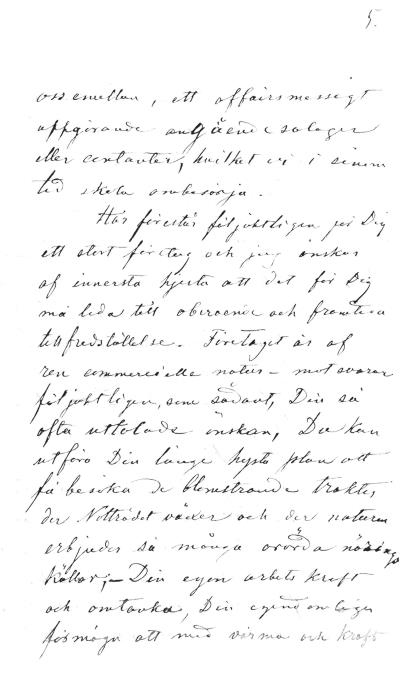 5.
oss emellan, ett affairsmessigt
uppgörande angående salager
eller contanter, hvilket vi i sinom
tid skola ombesörja.
Här förestår följaktligen för Dig
ett stort företag och jag önskar
af innersta hjerta att det för Dig
må leda till oberoende och framtida
tillfredställelse. Företaget är af
ren commerciella natur – motsvarar
följaktligen, som sådant, Din så
ofta uttalade önskan, Du kan
utföra Din länge hysta plan att
få besöka de blomstrande trakter
der Nottrådet växer och der naturen
erbjuder så många orörda närings
källor; – Din egen arbets kraft
och omtanka, Din egendomliga
förmåga att med värma och kraft